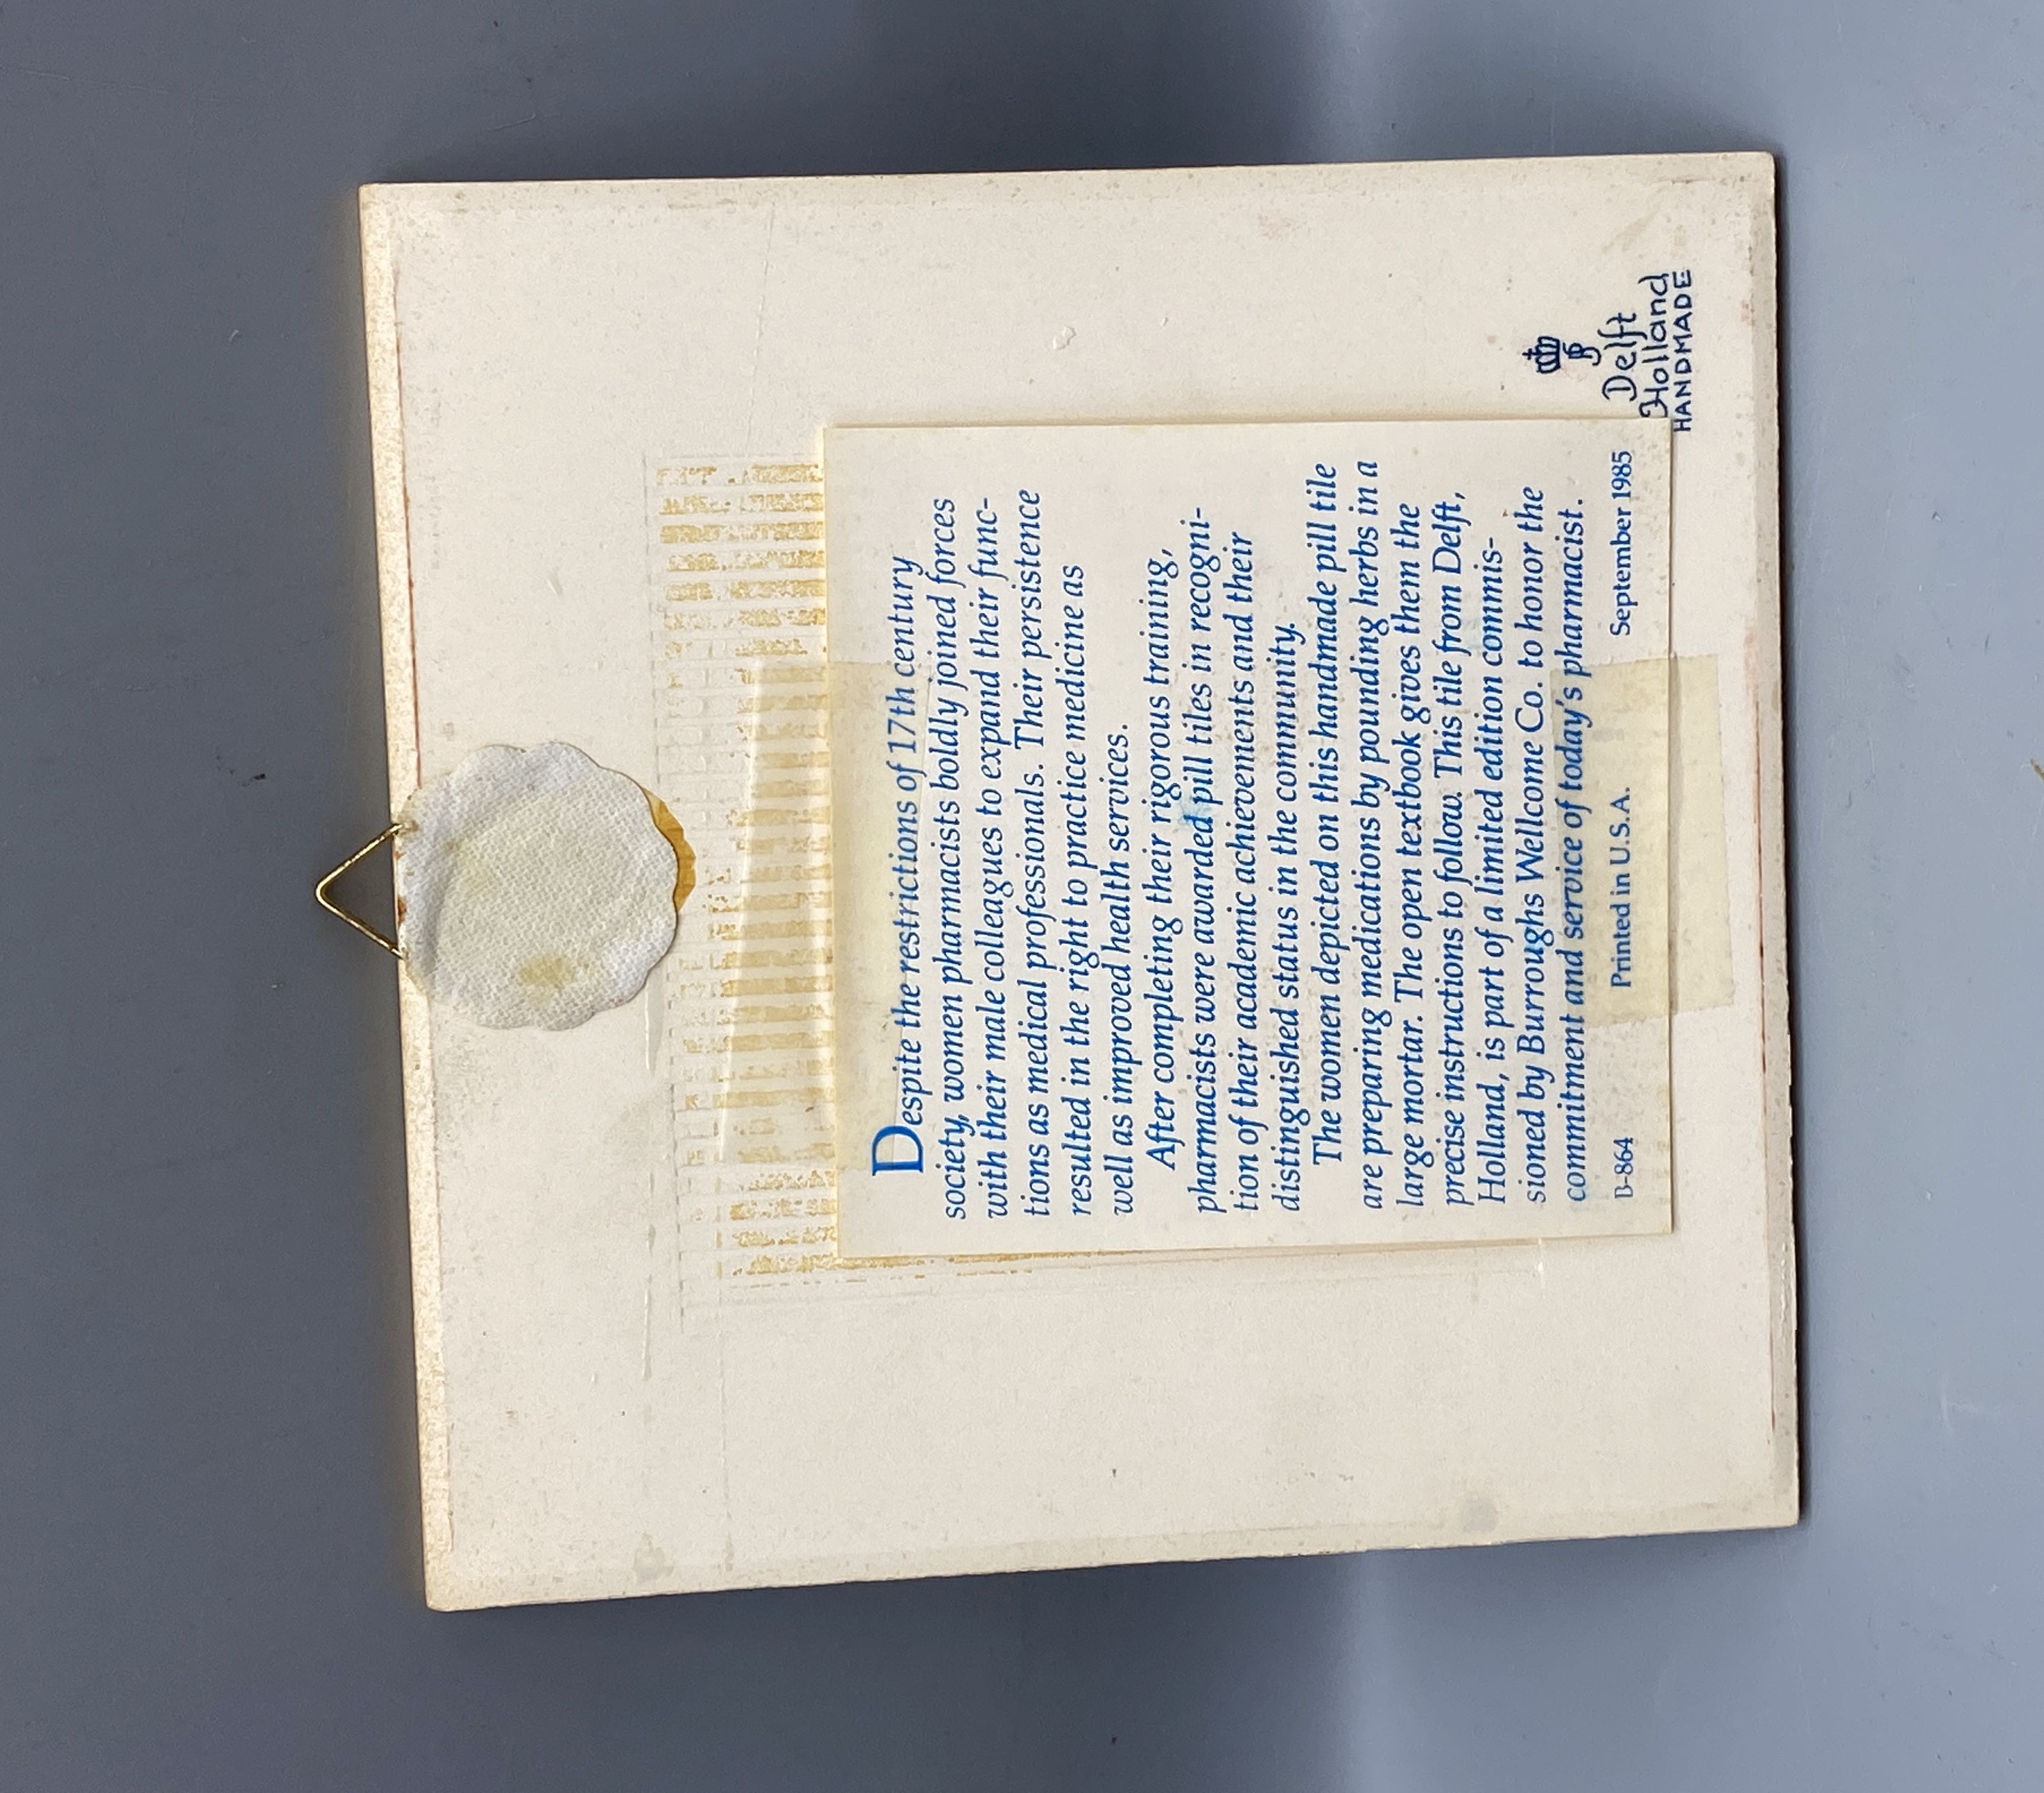 Despite the restrictions of 17th century
society, women pharmacists boldly joined forces
with their male colleagues to expand their func-
tions as medical professionals. Their persistence
resulted in the right to practice medicine as
well as improved health services.
After completing their rigorous training,
pharmacists were awarded pill tiles in recogni-
tion of their academic achievements and their
distinguished status in the community.
The women depicted on this handmade pill tile
are preparing medications by pounding herbs in a
large mortar. The open textbook gives them the
precise instructions to follow. This tile from Delft,
Holland, is part of a limited edition commis-
sioned by Burroughs Wellcome Co. to honor the
commitment and service of today's pharmacist.
B-864 Printed in U.S.A. September 1985
Delft
Holland
HANDMADE